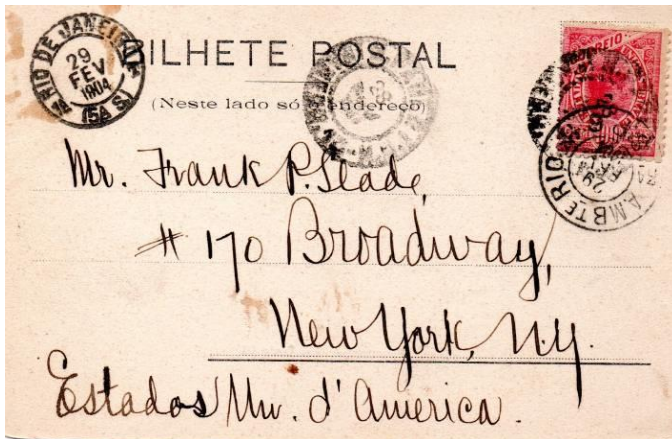 BILHETE POSTAL
(Neste lado só o endereço)
RIO DE JANEIRO
29
FEV
1904
(5A S)
Mr. Frank P. Slade,
# 170 Broadway,
New York, N.Y.
Estados Un. d'America.
AMBTE RIO
29